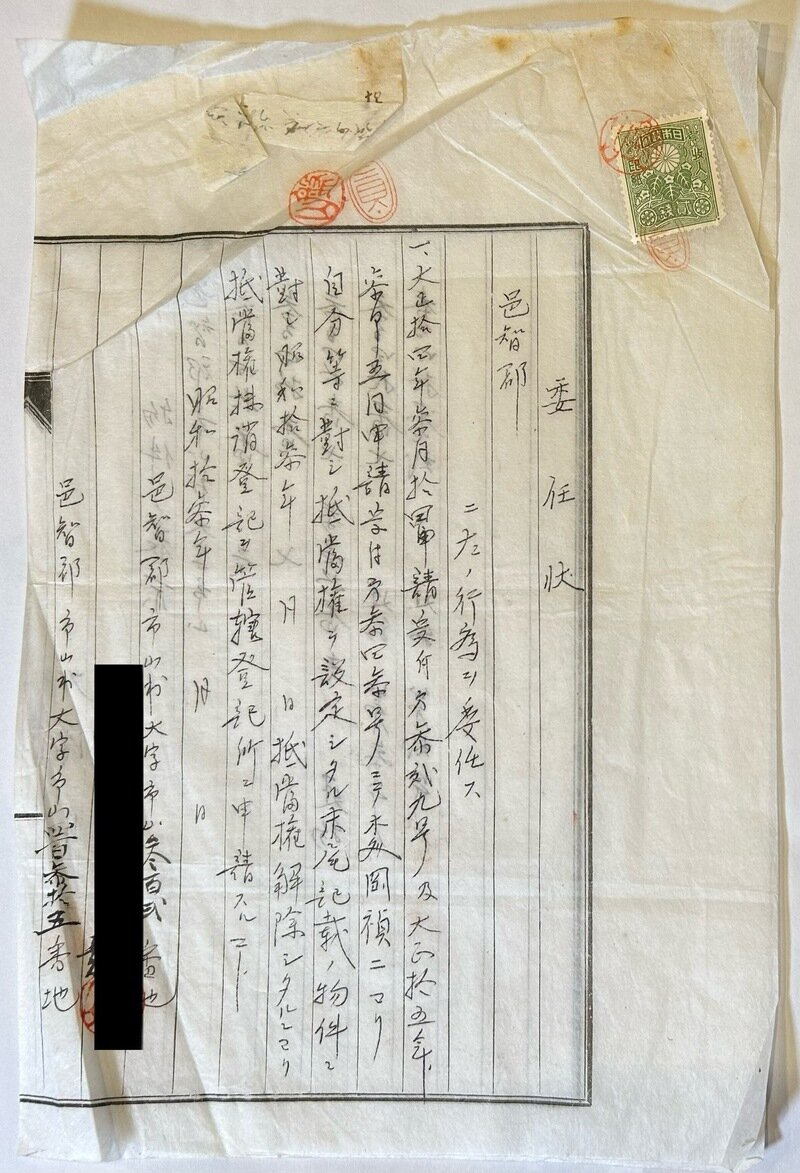 委任状
邑智郡
ニ左ノ行為ヲ委任ス
一、大正拾四年参月拾四日申請受付第参弐九号及大正拾五年
参月五日申請受付第参四参号ニテ 岡禎二ヨリ
自分等ニ對シ抵當権ヲ設定シタル末尾記載ノ物件ニ
對シ昭和拾参年七月 日抵當権解除シタルニヨリ
抵當権抹消登記ヲ管轄登記所ニ申請スルコト
昭和拾参年 月 日
邑智郡市山村大字市山参百弐 番地
邑智郡市山村大字市山 百参拾五番地